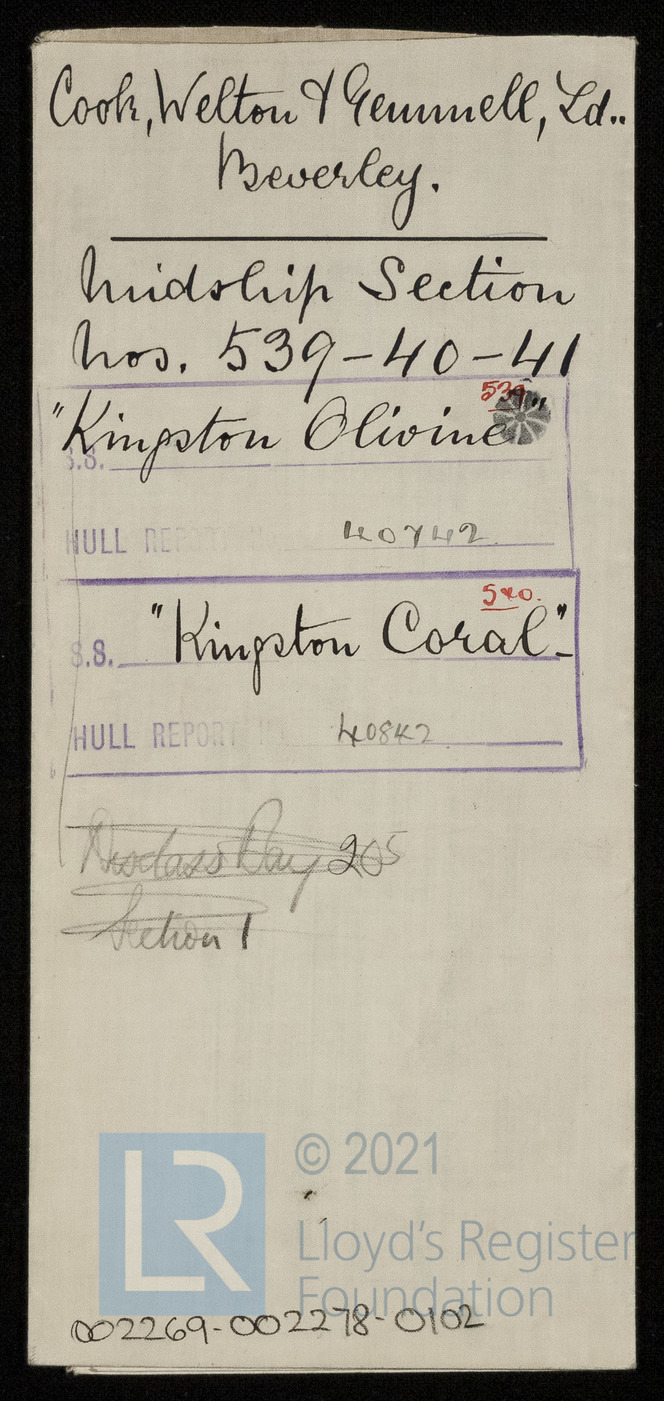 Cook, Welton & Gemmell, Ld..
Beverley.
Midship Section
Nos. 539-40-41
539
"Kingston Olivine"
S.S.
HULL REPORT 40742
540.
S.S. "Kingston Coral"
HULL REPORT 40842
Bay 205
Section 1
LR
© 2021
Lloyd's Register
Foundation
002269-002278-0102